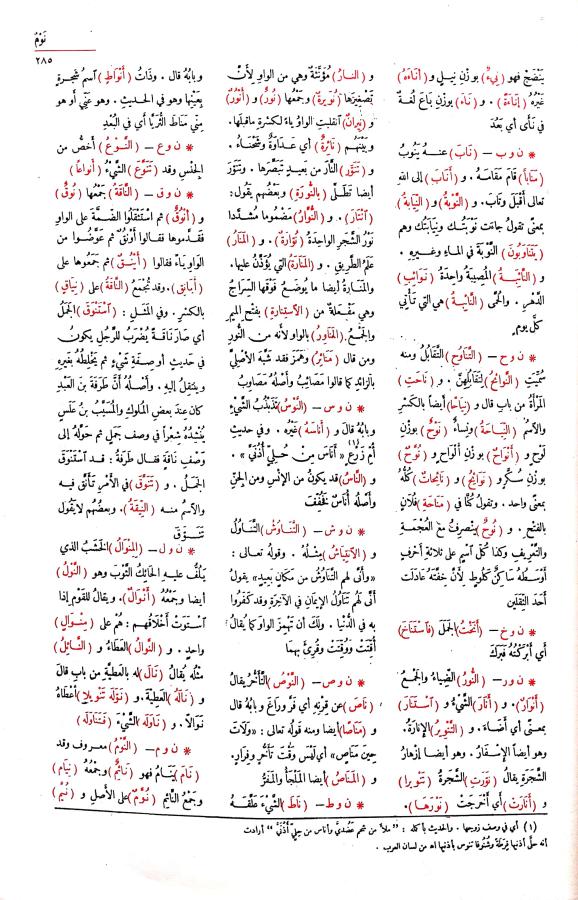 نَوْمُ
٢٨٥
يَنْضَجْ فهو (نِيءٌ) بوزْنِ نِيلٍ و (أَنَاءَهُ)
غَيْرُهُ (إِنَاءَةً) . و (نَاءَ) بوزْنِ بَاعَ لُغَةٌ
فى نَأَى أى بَعُدَ
* ن و ب – (نَابَ) عنـه يَنُوبُ
(مَنَاباً) قَامَ مَقَامَهُ . و (أَنَابَ) إلى اللهِ
تعالى أَقْبَلَ وتَابَ . و (النَّوْبَةُ) و (النِّيَابَةُ)
بمعنًى تقولُ جاءتْ نَوْبَتُـك ونِيَابَتُك وهم
(يَتَنَاوَبُونَ) النَّوْبَةَ فى الماءِ وغيرِهِ .
و (النَّائِبَةُ) المُصِيبَةُ واحدةُ (نَوَائِبِ)
الدَّهْرِ . والحُمَّى (النَّائِبَةُ) هى التى تَأْتِى
كلَّ يومٍ
* ن و ح – (التَّنَاوُحُ) التَّقَابُلُ ومنه
سُمِّيَتِ (النَّوائِحُ) لتَقَابُلِهِنَّ . و (نَاحَتِ)
المَرْأَةُ من باب قال و (نِيَاحًا) أيضا بالكَسْرِ
والاسْمُ (النِّيَاحَةُ) ونِساءٌ (نَوْحٌ) بوزْنِ
لَوْحٍ و (أَنْوَاحٌ) بوزْنِ أَلْوَاحٍ و (نُوَّحٌ)
بوزْنِ سُكَّرٍ و (نَوَائِحُ) و (نَائِحَاتٌ) كُلُّهُ
بمعنًى واحد . وتقولُ كُنَّا فى (مَنَاحَةِ) فُلَانٍ
بالفتح . و (نُوحٌ) يَنْصَرِفُ مع العُجْمَةِ
والتَّعْرِيفِ وكذا كُلُّ آسْمٍ على ثلاثةِ أَحْرُفٍ
أَوْسَطُهُ سَاكِنٌ كَلُوطٍ لِأَنَّ خِفَّتَهُ عَادَلَتْ
أَحَدَ الثِّقَلَيْنِ
* ن و خ – (أَنَخْتُ) الجَمَلَ (فاسْتَنَاخَ)
أى أَبْرَكْتُهُ فَبَرَكَ
* ن و ر – (النُّورُ) الضِّيَاءُ والجَمْعُ
(أَنْوَارٌ) . و (أَنَارَ) الشَّىْءُ و (اسْتَنَارَ)
بمعنًى أى أَضَاءَ . و (التَّنْوِيرُ) الإِنَارَةُ .
وهو أيضاً الإِسْفَارُ . وهو أيضا إِزْهَارُ
الشَّجَرَةِ يقالُ (نَوَّرَتِ) الشَّجَرَةُ (تَنْوِيرا)
و (أَنَارَتْ) أى أَخْرَجَتْ (نَوْرَهَا) .
و (النارُ) مُؤَنَّثَةٌ وهى من الواوِ لِأَنَّ
تَصْغِيرَهَا (نُوَيْرَةٌ) وجَمْعُها (نُورٌ) و (أَنْوُرٌ)
و (نِيرَانٌ) آنقلبتِ الواوُ ياءً لكسْرَةِ ماقبلَها .
وبَيْنَهُم (نَائِرَةٌ) أى عَدَاوَةٌ وشَحْنَاءُ .
و (تَنَوَّرَ) النَّارَ من بعيدٍ تَبَصَّرَها . وتَنَوَّرَ
أيضا تَطَلَّى (بالنُّورَةِ) وبَعْضُهم يقولُ:
(آنْتَارَ) . و (النُّوَّارُ) مَضْمُومًا مُشَدَّدا
نَوْرُ الشَّجَرِ الواحدةُ (نُوَّارَةٌ) . و (المَنَارُ)
عَلَمُ الطَّرِيقِ . و (المَنَارَةُ) التى يُؤَذَّنُ عليها .
والمَنَارَةُ أيضا ما يُوضَعُ فَوْقَها السِّرَاجُ
وهى مَفْعَلَةٌ من (الاسْتِنارةِ) بفَتْحِ الميمِ
والجمْعُ (المَنَاوِرُ) بالواو لأنه من النُّورِ
ومن قال (مَنَائِرُ) وهَمَزَ فقد شَبَّهَ الأَصْلِىَّ
بالزائدِ كما قالوا مَصَائِبُ وأَصْلُهُ مَصَاوِبُ
* ن و س – (النَّوْسُ) تَذَبْذُبُ الشَّىْءِ
وبابُهُ قالَ و (أَنَاسَهُ) غَيْرُهُ . وفى حديثِ
أُمِّ زَرْعٍ (١) « أَنَاسَ مِنْ حُلِيٍّ أُذُنَىَّ » .
و (النَّاسُ) قد يكونُ من الإِنْسِ ومن الجِنِّ
وأَصْلُهُ أُنَاسٌ خُفِّفَتْ
* ن و ش – (التَّنَاوُشُ) التَّنَاوُلُ
و (الاِنْتِيَاشُ) مِثْلُهُ . وقولُهُ تعالى :
« وَأَنَّى لَهُمُ التَّنَاوُشُ مِنْ مَكَانٍ بَعِيدٍ » يقولُ
أَنَّى لَهُم تَنَاوُلُ الإِيمَانِ فى الآخِرَةِ وقد كَفَرُوا
به فى الدُّنْيا . ولكَ أن تَهْمِزَ الواوَ كما يقالُ
أُقِّتَتْ وَوُقِّتَتْ وقُرِئَ بهما
* ن و ص – (النَّوْصُ) التَّأَخُّرُ يقالُ
(نَاصَ) عن قِرْنِهِ أى فَرَّ ورَاغَ وبابُهُ قال
و (مَنَاصًا) أيضا ومنه قولُهُ تعالى : « وَلَاتَ
حِينَ مَنَاصٍ » أى ليْسَ وقْتَ تَأَخُّرٍ وفِرَارٍ .
و (المَنَاصُ) أيضا المَلْجَأُ والمَفَرُّ
* ن و ط – (نَاطَ) الشَّىْءَ عَلَّقَـهُ
وبابُهُ قال . وذَاتُ (أَنْوَاطٍ) آسمُ شجرةٍ
بِعَيْنِها وهو فى الحديثِ . وهو عَنِّى أو هو
مِنِّى مَنَاطَ الثُّرَيَّا أى فى البُعْدِ
* ن و ع – (النَّوْعُ) أَخَصُّ من
الجِنْسِ وقد (تَنَوَّعَ) الشَّىْءُ (أنواعاً)
* ن و ق – (النَّاقَةُ) جَمْعُها (نُوقٌ)
و (أَنْوُقٌ) ثم اسْتَثْقَلُوا الضَّمَّةَ على الواوِ
فقَدَّموها فقالوا أَوْنُقٌ ثم عَوَّضُوا من
الواوِ ياءً فقالوا (أَيْنُقٌ) ثم جَمَعُوها على
(أَيَانِقَ) . وقد تُجْمَعُ (النَّاقَةُ) على (نِيَاقٍ)
بالكسْرِ . وفى المَثَـلِ : (اسْتَنْوَقَ) الجَمَلُ
أى صارَ نَاقَـةً يُضْرَبُ للرَّجُلِ يكونُ
فى حديثٍ أو صِفَةِ شَىْءٍ ثم يَخْلِطُهُ بغَيْرِهِ
ويَنْتَقِلُ إليه . وأَصْلُهُ أنَّ طَرَفَةَ بنَ العَبْدِ
كان عندَ بعضِ الملوكِ والمُسَيَّبُ بنُ عَلَسٍ
يُنْشِدُهُ شِعْراً فى وصف جَمَلٍ ثم حَوَّلَهُ إلى
وَصْفِ نَاقَةٍ فقال طَرَفَةُ : قد اسْتَنْوَقَ
الجَمَلُ . و (تَنَوَّقَ) فى الأَمْرِ تَأَنَّقَ فيه
والاسم منه (النِّيقَةُ) . وبعضُهم لا يَقُولُ
تَنَـوَّقَ
* ن و ل – (المِنْوَالُ) الخَشَبُ الذى
يَلُفُّ عليهِ الحَائِكُ الثَّوْبَ وهو (النَّوْلُ)
أيضا وجَمْعُهُ (أَنْوَالٌ) . ويقالُ للقَوْمِ إذا
اسْتَوَتْ أَخْلَاقُهُم : هُم على (مِنْوَالٍ)
واحدٍ . و (النَّوَالُ) العَطَاءُ و (النَّائِلُ)
مثْلُهُ يقالُ (نَالَ) له بالعطيةِ من بابِ قالَ
و (نَالَهُ) العَطِيَّةَ . و (نَوَّلَهُ تَنْوِيلا) أَعْطَاهُ
نَوَالاً . و (نَاوَلَه) الشَّىْءَ (فَتَنَاوَلَه)
* ن و م – (النَّوْمُ) معروفٌ وقد
(نَامَ) يَنَامُ فهو (نَائِمٌ) وجَمْعُهُ (نِيَامٌ)
وجَمْعُ النَّائِمِ (نُوَّمٌ) على الأَصْلِ و (نُيَّمٌ)
(١) أى فى وصف زوجها . والحديث بأكمله : "ملأ من شحم عَضُدَىَّ وأَنَاس من حِلِىٍّ أُذُنَىَّ" أرادت
أنه حلَّى أذنيها قِرَطَةً وشُنُوفا تنوس بأذنيها اه من لسان العرب .